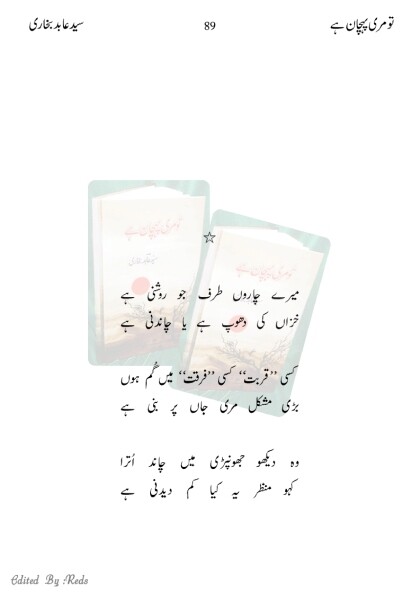 تو مری پہچان ہے 89 سید عابد بخاری
تو مری پہچان ہے
تو مری پہچان ہے
☆
میرے چاروں طرف جو روشنی ہے
خزاں کی دھوپ ہے یا چاندنی ہے
کسی ’’قربت‘‘ کسی ’’فرقت‘‘ میں گم ہوں
بڑی مشکل مری جاں پر بنی ہے
وہ دیکھو جھونپڑی میں چاند اُترا
کہو منظر یہ کیا کم دیدنی ہے
Edited By :Reds